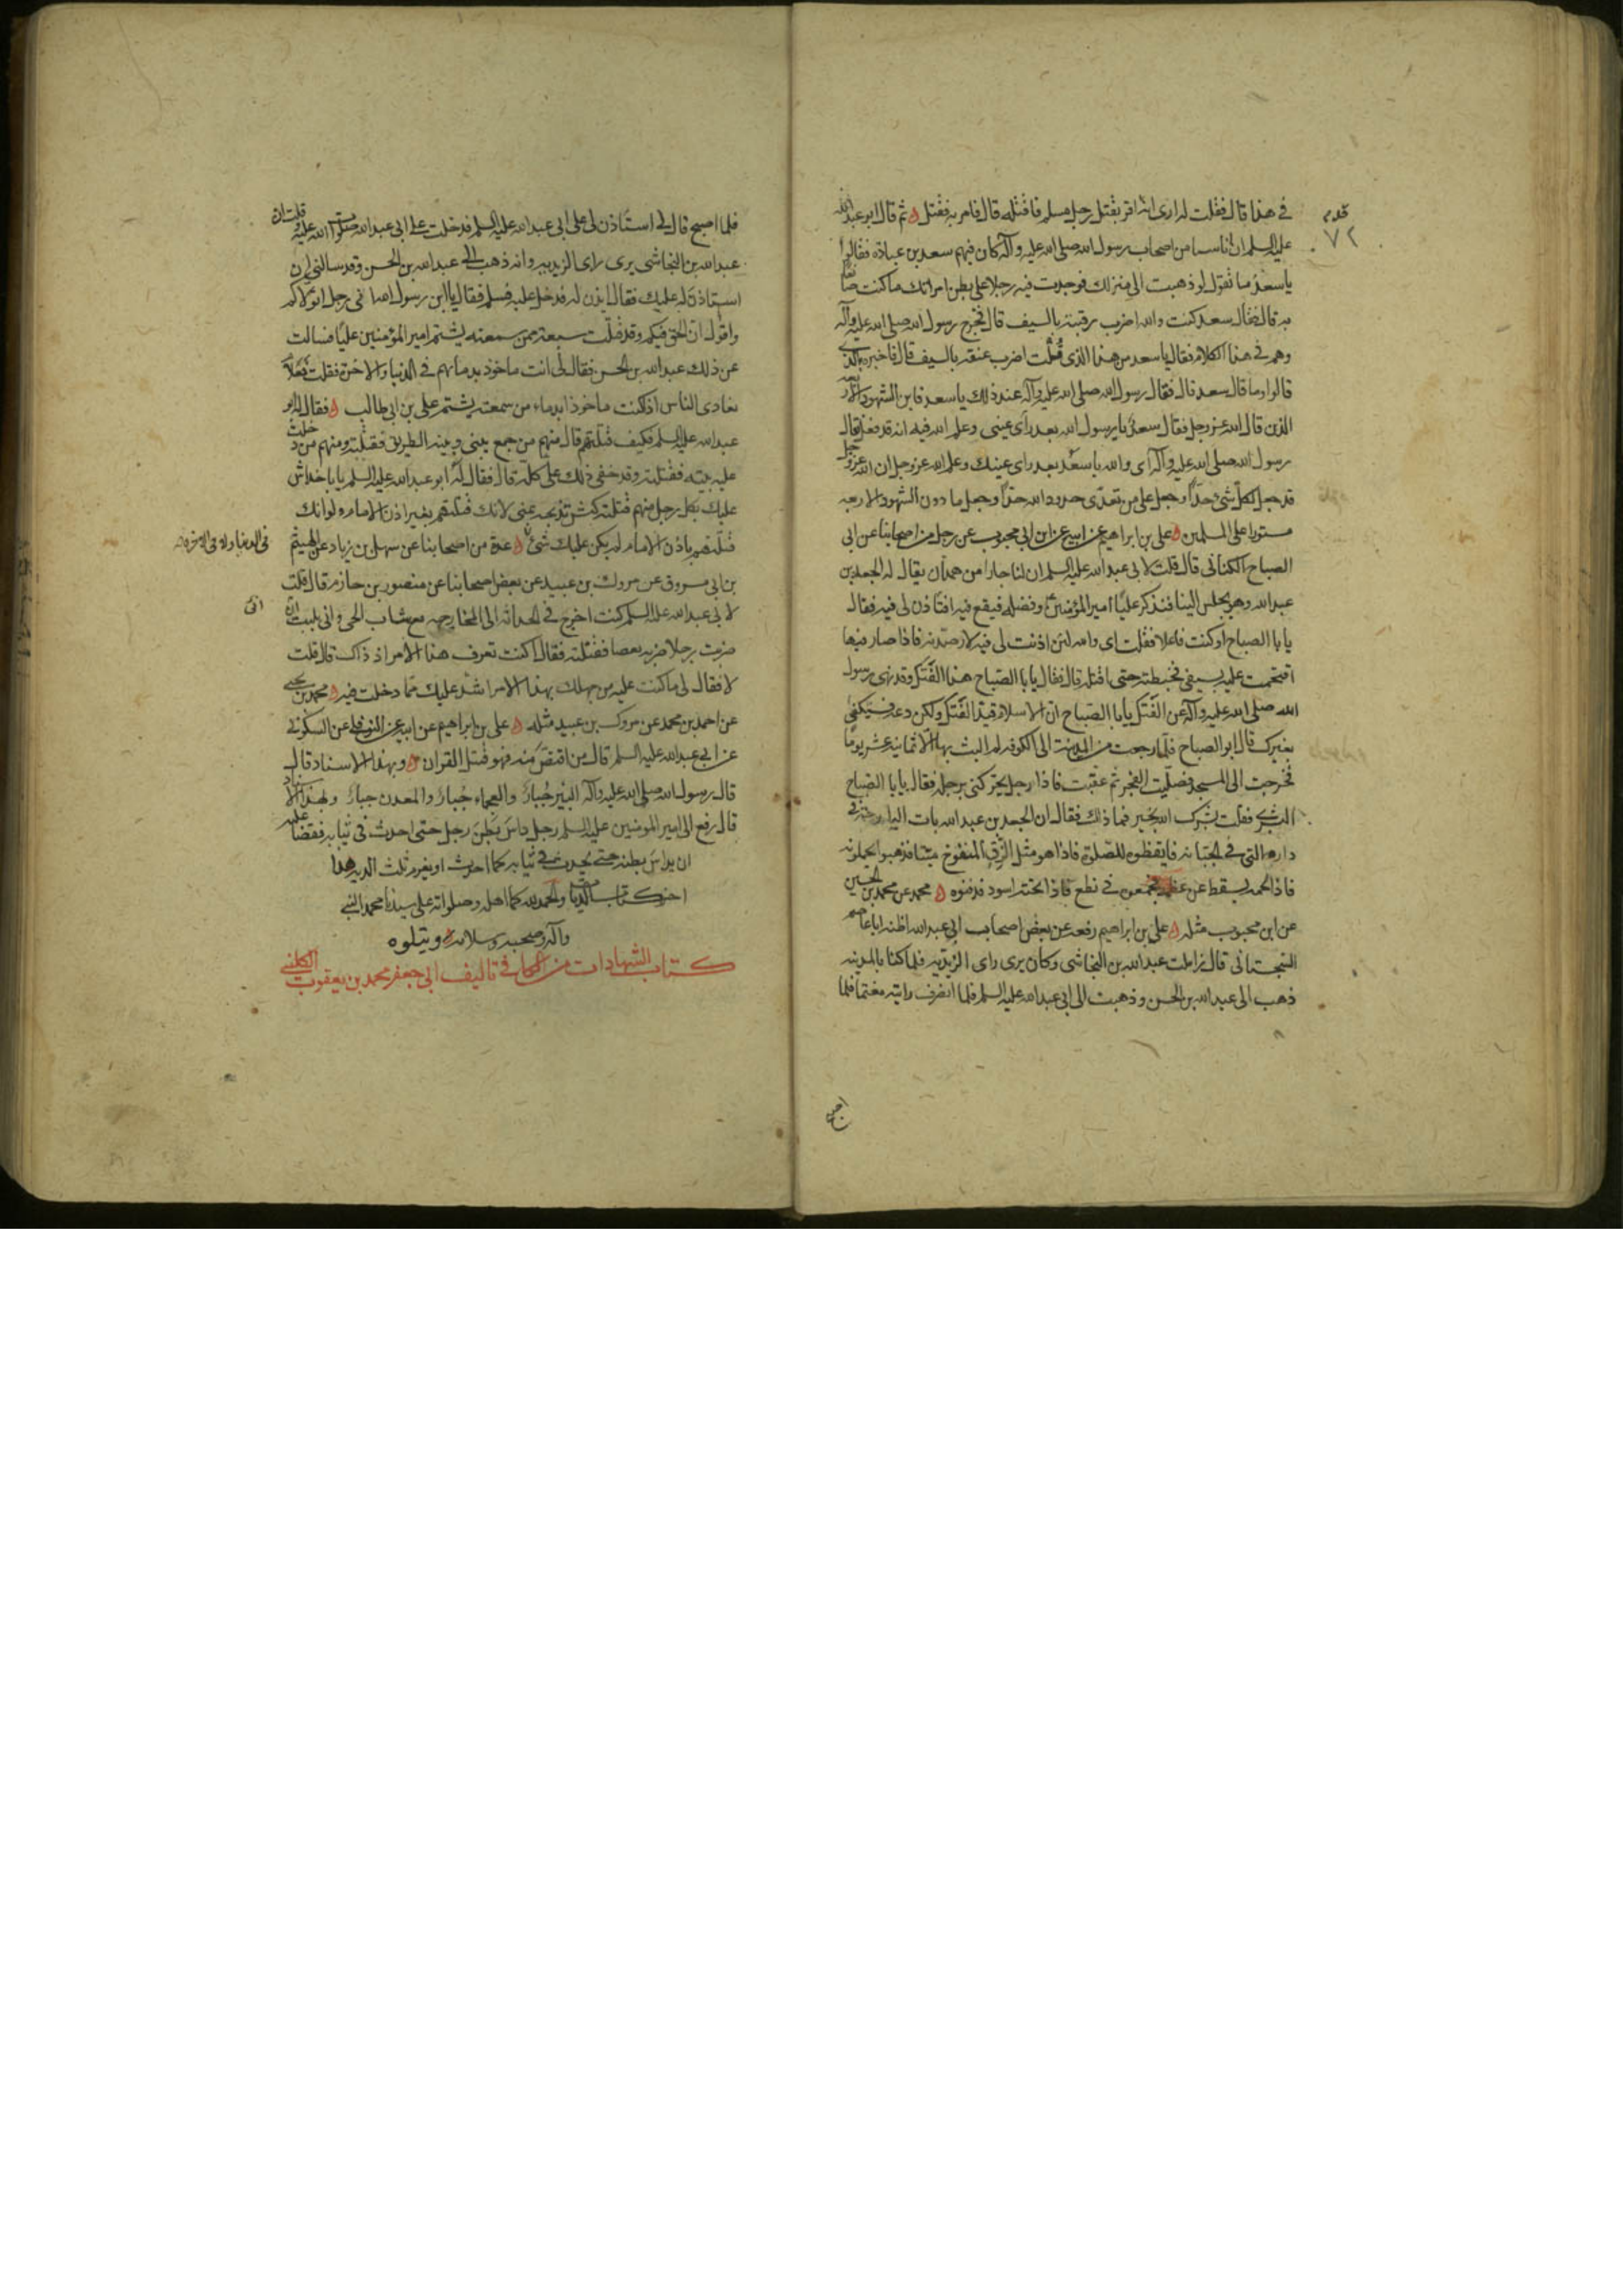 في هذا قال فقلت له ارى انه اقر بقتل رجل مسلم فاقتله قال فامر به فقتل ثم قال ابو عبد الله
عليه السلم ان اناسا من اصحاب رسول الله صلى الله عليه وآله كان فيهم سعد بن عبادة فقالوا
يا سعد ما تقول لو ذهبت الى منزلك فوجدت فيه رجلا على بطن امراتك ما كنت صانعا
به قال فقال سعد كنت والله اضرب رقبته بالسيف قال فخرج رسول الله صلى الله عليه وآله
وهم في هذا الكلام فقال يا سعد من هذا الذى قلت اضرب عنقه بالسيف قال فاخبره بالذي
قالوا وما قال سعد قال فقال رسول الله صلى الله عليه وآله عند ذلك يا سعد فاين الشهود الاربعه
الذين قال الله عز وجل فقال سعد يا رسول الله بعد راى عينى وعلم الله فيه انه قد فعل قال
رسول الله صلى الله عليه وآله اى والله يا سعد بعد راى عينك وعلم الله عز وجل ان الله عز وجل
قد جعل لكل شئ حدا وجعل على من تعدى حدود الله حدا وجعل ما دون الشهود الاربعه
مستورا على المسلمين علي بن ابراهيم عن ابيه عن ابن ابي محبوب عن رجل من اصحابنا عن ابى
الصباح الكنانى قال قلت لابى عبد الله عليه السلم ان لنا جارا من همدان يقال له الجعد بن
عبد الله وهو يجلس الينا فنذكر عليا امير المؤمنين وفضله فيقع فيه افتاذن لى فيه فقال
يا با الصباح اوكنت فاعلا فقلت اى والله لئن اذنت لى فيه لارصدنه فاذا صار فيها
اقتحمت عليه بسيفى فخبطته حتى اقتله قال فقال يا با الصباح هذا الفتك وقد نهى رسول
الله صلى الله عليه وآله عن الفتك يا با الصباح ان الاسلام قيد الفتك ولكن دعه فستكفى
بغيرك قال ابو الصباح فلما رجعت من المدينة الى الكوفه لم البث بها الا ثمانيه عشر يوما
فخرجت الى المسجد فصليت الفجر ثم عقبت فاذا رجل يحركنى برجله فقال يا با الصباح
البشرى فقلت بشرك الله بخير فما ذلك فقال ان الجعد بن عبد الله بات البارحة في
داره التى في الجبانه فايقظوه للصلوة فاذا هو مثل الزق المنفوخ ميتا فذهبوا يحملونه
فاذا لحمه يسقط عن عظمه فجمعوه في نطع فاذا تحته اسود فدفنوه محمد عن محمد بن الحسين
عن ابن محبوب مثله على بن ابراهيم رفعه عن بعض اصحاب ابى عبد الله اظنه ابا عاصم
السجستانى قال زاملت عبد الله بن النجاشى وكان يرى راى الزيديه فلما كنا بالمدينه
ذهب الى عبد الله بن الحسن وذهبت الى ابى عبد الله عليه السلم فلما انصرف رايته مغتما فلما
٧٢
اصبح
فلما اصبح قال لي استاذن لى على ابى عبد الله عليه السلم فدخلت على ابى عبد الله صلوات الله عليه وقلت ان
عبد الله بن النجاشى يرى راى الزيديه وانه ذهب الى عبد الله بن الحسن وقد سالنى ان
استاذن له عليك فقال ايذن له فدخل عليه فسلم فقال يا ابن رسول الله انى رجل اتولاكم
واقول ان الحق فيكم وقد قتلت سبعة ممن سمعته يشتم امير المؤمنين عليا فسالت
عن ذلك عبد الله بن الحسن فقال لى انت ماخوذ بدمائهم في الدنيا والاخرة فقلت فعلام
نعادى الناس اذا كنت ماخوذا بدماء من سمعته يشتم على بن ابى طالب فقال له ابو
عبد الله عليه السلم فكيف قتلتهم قال منهم من جمع بينى وبينه الطريق فقتلته ومنهم من دخلت
عليه بيته فقتلته وقد خفى ذلك على كله قال فقال له ابو عبد الله عليه السلم يا با خداش
عليك بكل رجل منهم قتلته كبش تذبحه بمنى لانك قتلتهم بغير اذن الامام ولو انك
قتلتهم باذن الامام لم يكن عليك شئ عدة من اصحابنا عن سهل بن زياد عن الهيثم
فى الدنيا ولا فى الاخرة
بن ابى مسروق عن مروك بن عبيد عن بعض اصحابنا عن منصور بن حازم قال قلت
لابى عبد الله عليه السلم كنت اخرج في الحداثه الى المخارجه مع شباب الحى وانى بليت ان
ضربت رجلا ضربه بعصا فقتلته فقال اكنت تعرف هذا الامر اذ ذاك قال قلت
لا فقال لى ما كنت عليه من جهلك بهذا الامر اشد عليك مما دخلت فيه محمد بن يحيى
عن احمد بن محمد عن مروك بن عبيد مثله على بن ابراهيم عن ابيه عن النوفلي عن السكوني
عن ابي عبد الله عليه السلم قال من اقتص منه فهو قتيل القران وبهذا الاسناد قال
قال رسول الله صلى الله عليه وآله البئر جبار والعجماء جبار والمعدن جبار وبهذا الاسناد
قال رفع الى امير المومنين عليه السلم رجل داس بطن رجل حتى احدث في ثيابه فقضا عليه
ان يداس بطنه حتى يحدث في ثيابه كما احدث او يغرم ثلث الديه هذا
اخر كتاب الديات والحمد لله كما اهله وصلواته على سيدنا محمد النبي
وآله وصحبه وسلامه ويتلوه
كتاب الشهادات من الكافي تاليف ابى جعفر محمد بن يعقوب الكليني